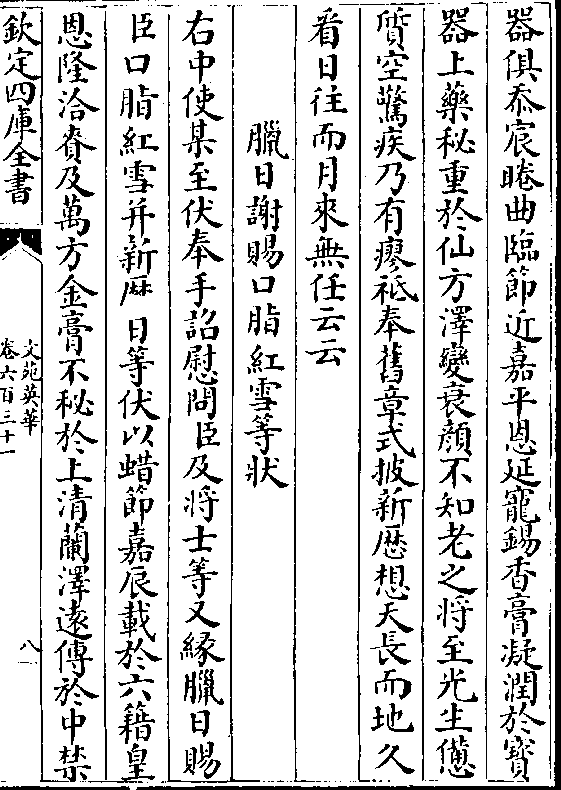 器俱忝宸睠曲臨節近嘉平恩延寵錫香膏凝潤於寳
器上藥秘重於仙方澤變衰顔不知老之將至光生憊
質空驚疾乃有瘳祗奉舊章式披新厯想天長而地久
看日往而月來無任云云
臘日謝賜口脂紅雪等狀
右中使某至伏奉手詔慰問臣及將士等又縁臘日賜
臣口脂紅雪并新厯日等伏以蜡節嘉辰載於六籍皇
恩隆洽賚及萬方金膏不秘於上清蘭澤逺傳於中禁
欽定四庫全書
文苑英華
卷六百三十一
八